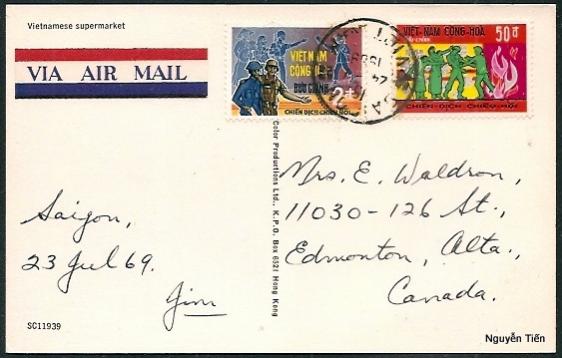 Vietnamese supermarket
VIA AIR MAIL
VIỆT NAM
CỘNG HÒA
BƯU CHÍNH
2đ
CHIẾN DỊCH CHIÊU HỒI
VIỆT-NAM CỘNG-HÒA
BƯU-CHÍNH
50đ
CHIẾN-DỊCH CHIÊU-HỒI
Saigon,
23 Jul 69.
Jim
SC11939
Color Productions Ltd., K.P.O. Box 6521 Hong Kong
Mrs. E. Waldron,
11030-126 St.,
Edmonton, Alta.,
Canada.
Nguyễn Tiến